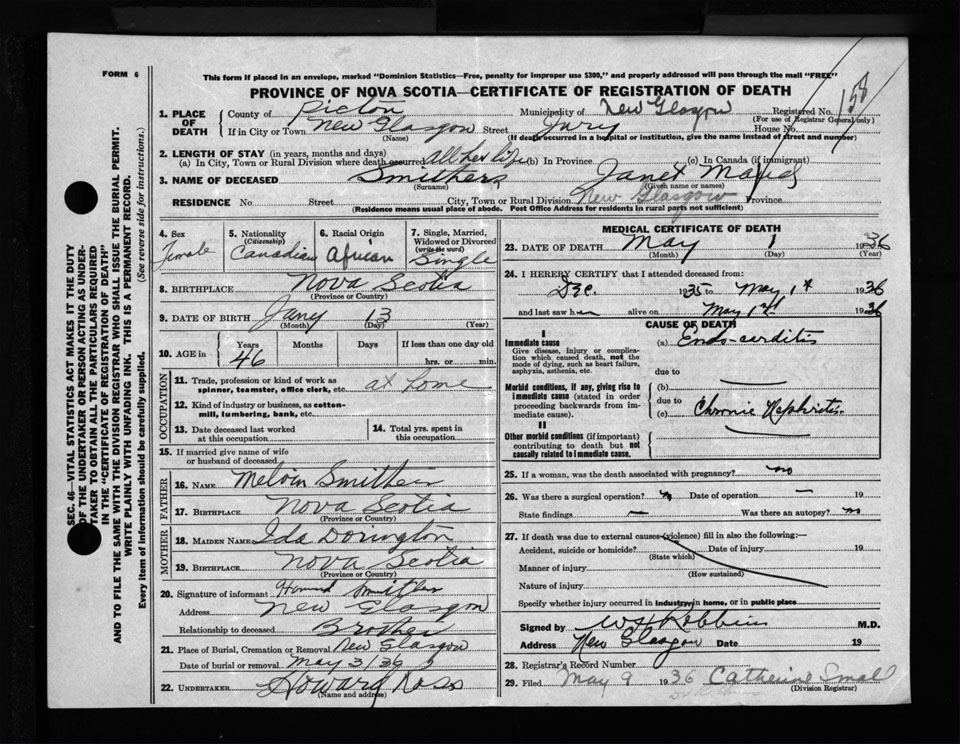 FORM 6
This form if placed in an envelope, marked "Dominion Statistics—Free, penalty for improper use $300," and properly addressed will pass through the mail "FREE"
PROVINCE OF NOVA SCOTIA—CERTIFICATE OF REGISTRATION OF DEATH
158
1. PLACE OF DEATH
County of Pictou Municipality of New Glasgow Registered No.
(For use of Registrar General only)
If in City or Town New Glasgow Street House No.
(Name) (If death occurred in a hospital or institution, give the name instead of street and number)
2. LENGTH OF STAY (in years, months and days)
(a) In City, Town or Rural Division where death occurred all her life (b) In Province (c) In Canada (if immigrant)
3. NAME OF DECEASED Smithers Janet
(Surname) (Given name or names)
RESIDENCE No. Street City, Town or Rural Division New Glasgow Province
(Residence means usual place of abode. Post Office Address for residents in rural parts not sufficient)
SEC. 46—VITAL STATISTICS ACT MAKES IT THE DUTY
OF THE UNDERTAKER OR PERSON ACTING AS UNDER-
TAKER TO OBTAIN ALL THE PARTICULARS REQUIRED
IN THE "CERTIFICATE OF REGISTRATION OF DEATH"
AND TO FILE THE SAME WITH THE DIVISION REGISTRAR WHO SHALL ISSUE THE BURIAL PERMIT.
WRITE PLAINLY WITH UNFADING INK. THIS IS A PERMANENT RECORD.
Every item of information should be carefully supplied. (See reverse side for instructions.)
4. Sex
Female
5. Nationality
(Citizenship)
Canadian
6. Racial Origin
African
7. Single, Married,
Widowed or Divorced
(write the word)
Single
8. BIRTHPLACE Nova Scotia
(Province or Country)
9. DATE OF BIRTH Jany 13
(Month) (Day) (Year)
10. AGE in Years Months Days If less than one day old
46 hrs. or min.
OCCUPATION
11. Trade, profession or kind of work as
spinner, teamster, office clerk, etc. at home
12. Kind of industry or business, as cotton-
mill, lumbering, bank, etc.
13. Date deceased last worked
at this occupation
14. Total yrs. spent in
this occupation
15. If married give name of wife
or husband of deceased
FATHER
16. NAME Melvin Smithers
17. BIRTHPLACE Nova Scotia
(Province or Country)
MOTHER
18. MAIDEN NAME Ida Dorington
19. BIRTHPLACE Nova Scotia
(Province or Country)
20. Signature of informant Smithers
Address New Glasgow
Relationship to deceased Brother
21. Place of Burial, Cremation or Removal New Glasgow
Date of burial or removal May 3/36
22. UNDERTAKER Howard Ross
(Name and address)
MEDICAL CERTIFICATE OF DEATH
23. DATE OF DEATH May 1 1936
(Month) (Day) (Year)
24. I HEREBY CERTIFY that I attended deceased from:
Dec. 1935 to May 1st 1936
and last saw her alive on May 1st 1936
CAUSE OF DEATH
I
Immediate cause
Give disease, injury or complica-
tion which caused death, not the
mode of dying, such as heart failure,
asphyxia, asthenia, etc.
(a) Endo-carditis
due to
Morbid conditions, if any, giving rise to
immediate cause (stated in order
proceeding backwards from im-
mediate cause).
(b)
due to
(c) Chronic Nephritis
II
Other morbid conditions (if important)
contributing to death but not
causally related to immediate cause.
25. If a woman, was the death associated with pregnancy? no
26. Was there a surgical operation? n Date of operation — 19
State findings — Was there an autopsy? no
27. If death was due to external causes (violence) fill in also the following:—
Accident, suicide or homicide? Date of injury 19
(State which)
Manner of injury
(How sustained)
Nature of injury
Specify whether injury occurred in industry, in home, or in public place
Signed by W H Robbins M.D.
Address New Glasgow Date 19
28. Registrar's Record Number
29. Filed May 9 1936 Catherine Small
(Division Registrar)